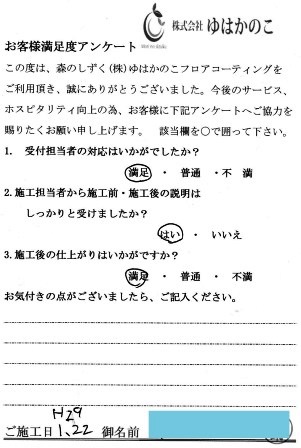 株式会社 ゆはかのこ
お客様満足度アンケート
この度は、森のしずく(株)ゆはかのこフロアコーティングを
ご利用頂き、誠にありがとうございました。今後のサービス、
ホスピタリティ向上の為、お客様に下記アンケートへご協力を
賜りたくお願い申し上げます。 該当欄を○で囲って下さい。
1. 受付担当者の対応はいかがでしたか?
満足 ・ 普通 ・ 不 満
2. 施工担当者から施工前・施工後の説明は
しっかりと受けましたか?
はい ・ いいえ
3. 施工後の仕上がりはいかがですか?
満足 ・ 普通 ・ 不満
お気付きの点がございましたら、ご記入ください。
H29
ご施工日 1、22 御名前